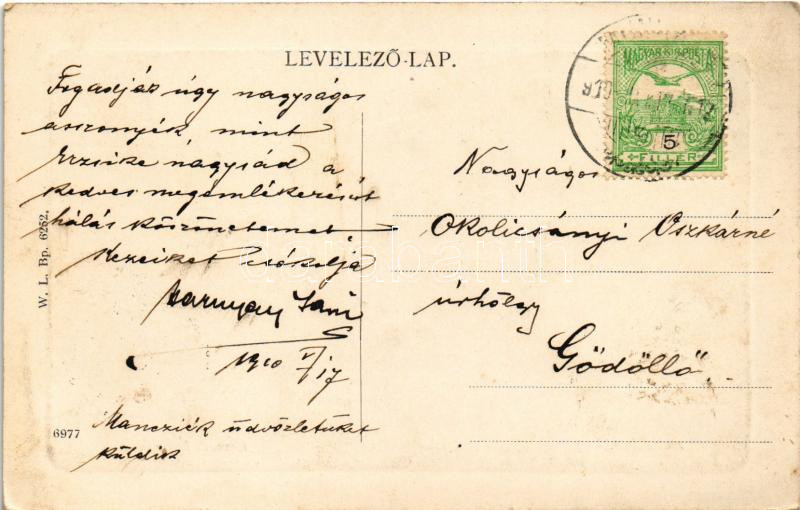 LEVELEZŐ-LAP.
Fogadják úgy nagyságos
asszonyék, mint
Erzsike nagysád a
kedves megemlékezésért
hálás köszönetemet.
Kezeiket csókolja
Jani
1910 V/17
Mancziék üdvözletüket
küldik
W. L. Bp. 6252.
6977
MAGYAR KIR. POSTA
5
FILLÉR
Nagyságos
Okolicsányi Oszkárné
úrhölgy
Gödöllő.
darabanth